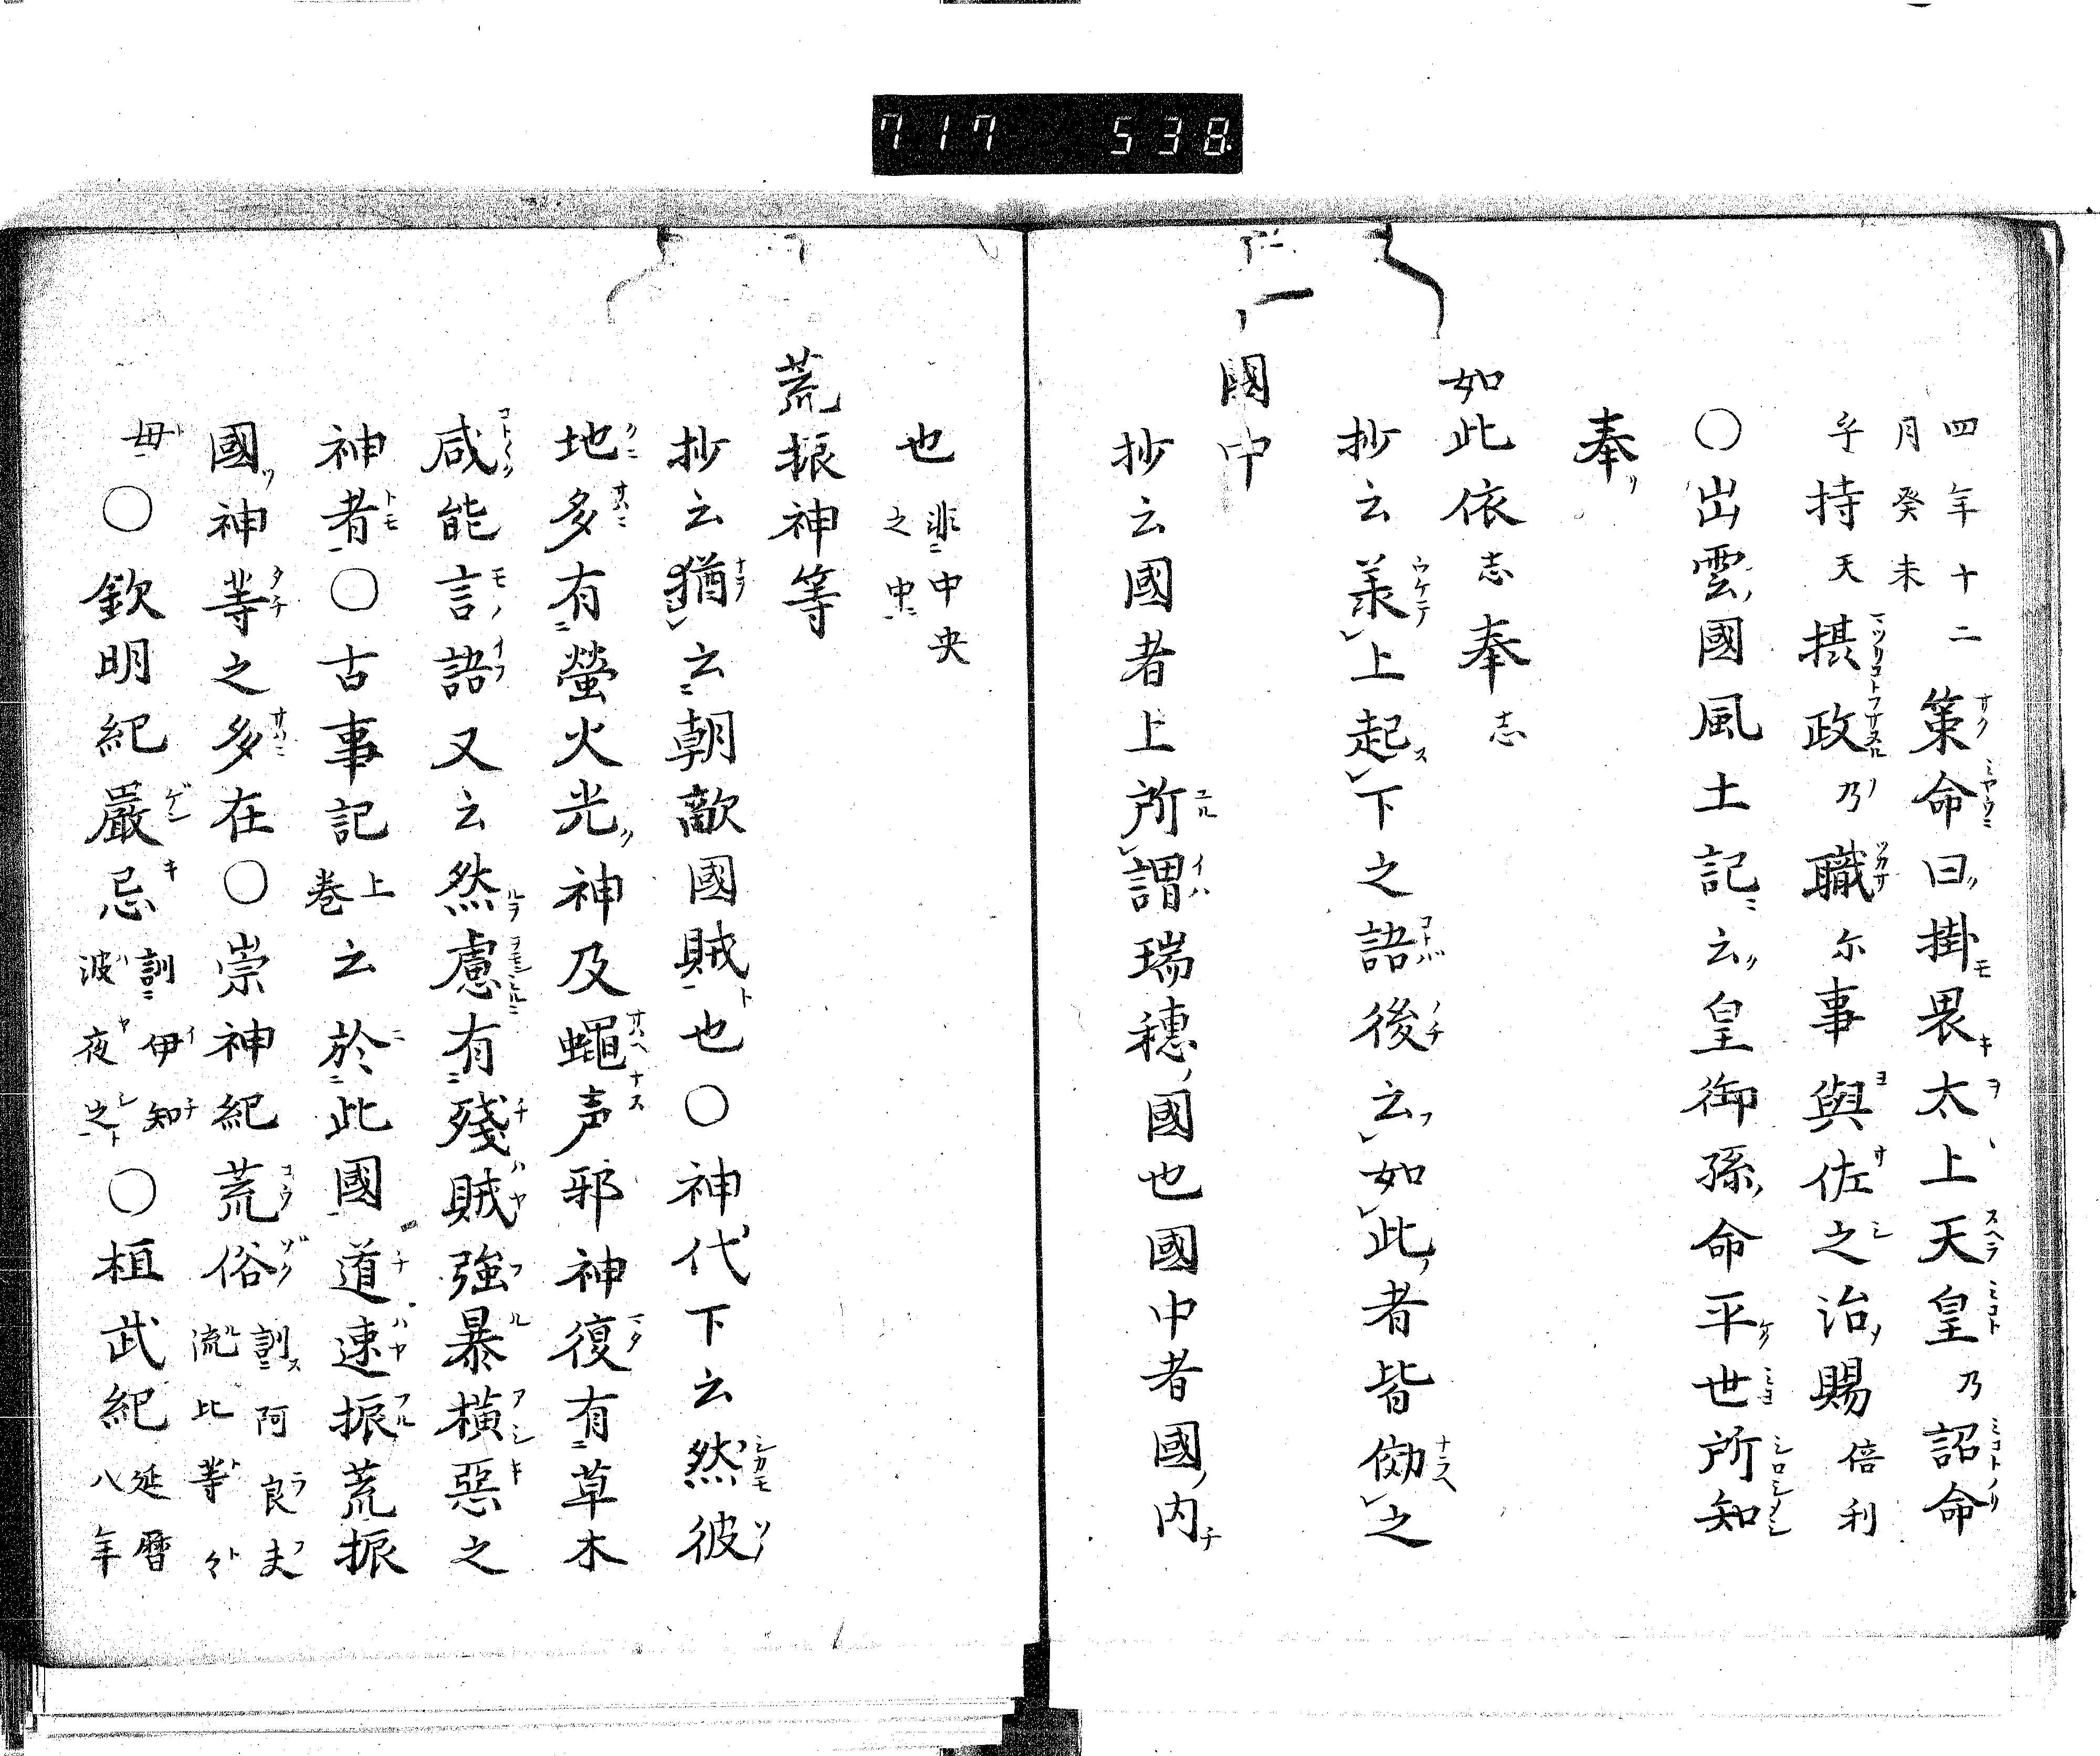 717 538.
四年十二月癸未 策命曰掛畏太上天皇乃詔命
乎持天摂政乃職尓事與佐之治賜倍利
〇出雲國風土記云皇御孫命平世所知
奉
如此依志奉志
抄云羕上起下之語後云如此者皆効之
國中
抄云國者上所謂瑞穗國也國中者國内
也非中央之中
荒振神等
抄云猶云朝敵國賊也〇神代下云然彼
地多有螢火光神及蠅声邪神復有草木
咸能言語又云然慮有殘賊強暴橫惡之
神者〇古事記上巻云於此國道速振荒振
國神等之多在〇崇神紀荒俗訓阿良夫流比等々
毋〇欽明紀巖忌訓伊知波夜之〇桓武紀延暦八年